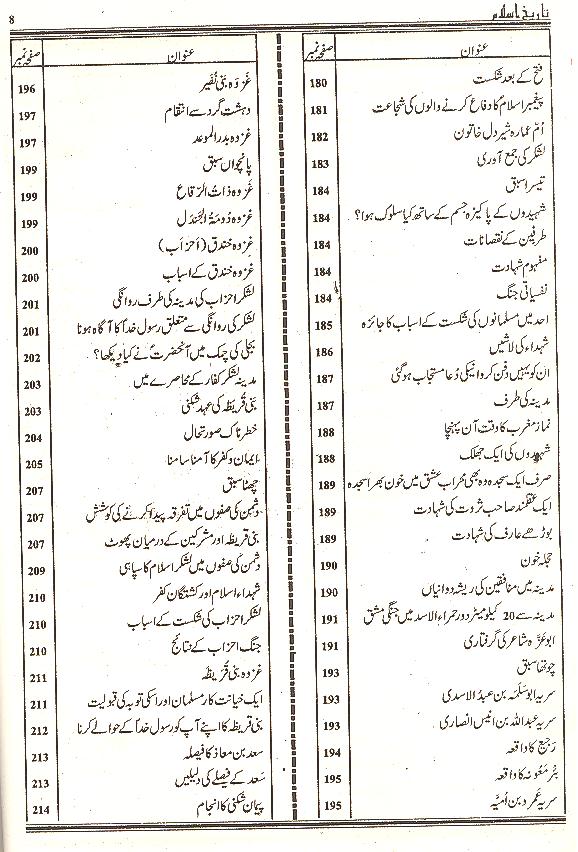 تاریخ اسلام 8
عنوان صفحہ نمبر
فتح کے بعد شکست 180
پیغمبر اسلام کا دفاع کرنے والوں کی شجاعت 181
اُمّ عمارہ شیر دل خاتون 182
لشکر کی جمع آوری 183
تیسرا سبق 184
شہیدوں کے پاکیزہ جسم کے ساتھ کیا سلوک ہوا؟ 184
طرفین کے نقصانات 184
مفہوم شہادت 184
نفسیاتی جنگ 184
احد میں مسلمانوں کی شکست کے اسباب کا جائزہ 185
شہداء کی لاشیں 186
ان کو یہیں دفن کرو انکی دُعا مستجاب ہوگئی 187
مدینہ کی طرف 187
نماز مغرب کا وقت آن پہنچا 188
شہیدوں کی ایک جھلک 188
صرف ایک سجدہ وہ بھی محراب عشق میں خون بھرا سجدہ 189
ایک عقلمند صاحب ثروت کی شہادت 189
بوڑھے عارف کی شہادت 189
حجلہ خون 190
مدینہ میں منافقین کی ریشہ دوانیاں 190
مدینہ سے 20 کیلومیٹر دور حمراء الاسد میں جنگی مشق 191
ابو عزّہ شاعر کی گرفتاری 191
چوتھا سبق 193
سریہ ابوسَلَمَہ بن عبدُ الاسدی 193
سریہ عبداللہ بن انیس انصاری 193
رَجیع کا واقعہ 194
بئر مَعُونہ کا واقعہ 195
سریہ عَمرو بن اُمیَّہ 195
عنوان صفحہ نمبر
غَزوَہ بَنی نُضَیر 196
دہشت گرد سے انتقام 197
غزوہ بدر الموعد 197
پانچواں سبق 199
غَزوہ ذَاتُ الرّقاع 199
غزوہ دُومَۃُ الجَندَل 199
غزوہ خندق (اَحزاب) 200
غزوہ خندق کے اسباب 200
لشکر احزاب کی مدینہ کی طرف روانگی 201
لشکر کی روانگی سے متعلق رسول خداؐ کا آگاہ ہونا 201
بجلی کی چمک میں آنحضرتؐ نے کیا دیکھا؟ 202
مدینہ لشکر کفار کے محاصرے میں 203
بَنی قُریظہ کی عہد شکنی 203
خطرناک صورتحال 204
ایمان و کفر کا آمنا سامنا 205
چھٹا سبق 207
دشمن کی صفوں میں تفرقہ پیدا کرنے کی کوشش 207
بنی قریظہ اور مشرکین کے درمیان پھوٹ 207
دشمن کی صفوں میں لشکر اسلام کا سپاہی 209
شہداء اسلام اور کشتگان کفر 210
لشکر احزاب کی شکست کے اسباب 210
جنگ احزاب کے نتائج 210
غزوہ بنی قُرَیظَہ 211
ایک خیانت کار مسلمان اور اسکی توبہ کی قبولیت 211
بَنی قریظہ کا اپنے آپ کو رسول خداؐ کے حوالے کرنا 212
سعد بن معاذ کا فیصلہ 213
سَعد کے فیصلے کی دلیلیں 213
پیمان شکنی کا انجام 214